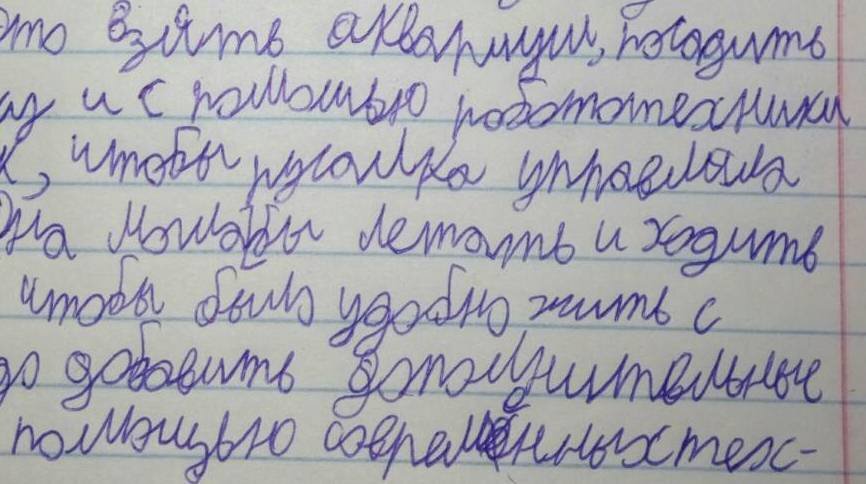 это взять аквариум, посадить
аз и с помошью робототехники
к, чтобы русалка управляла
Она могла бы летать и ходить
чтобы было удобно жить с
до добавить дополнительные
помощью современных тех-